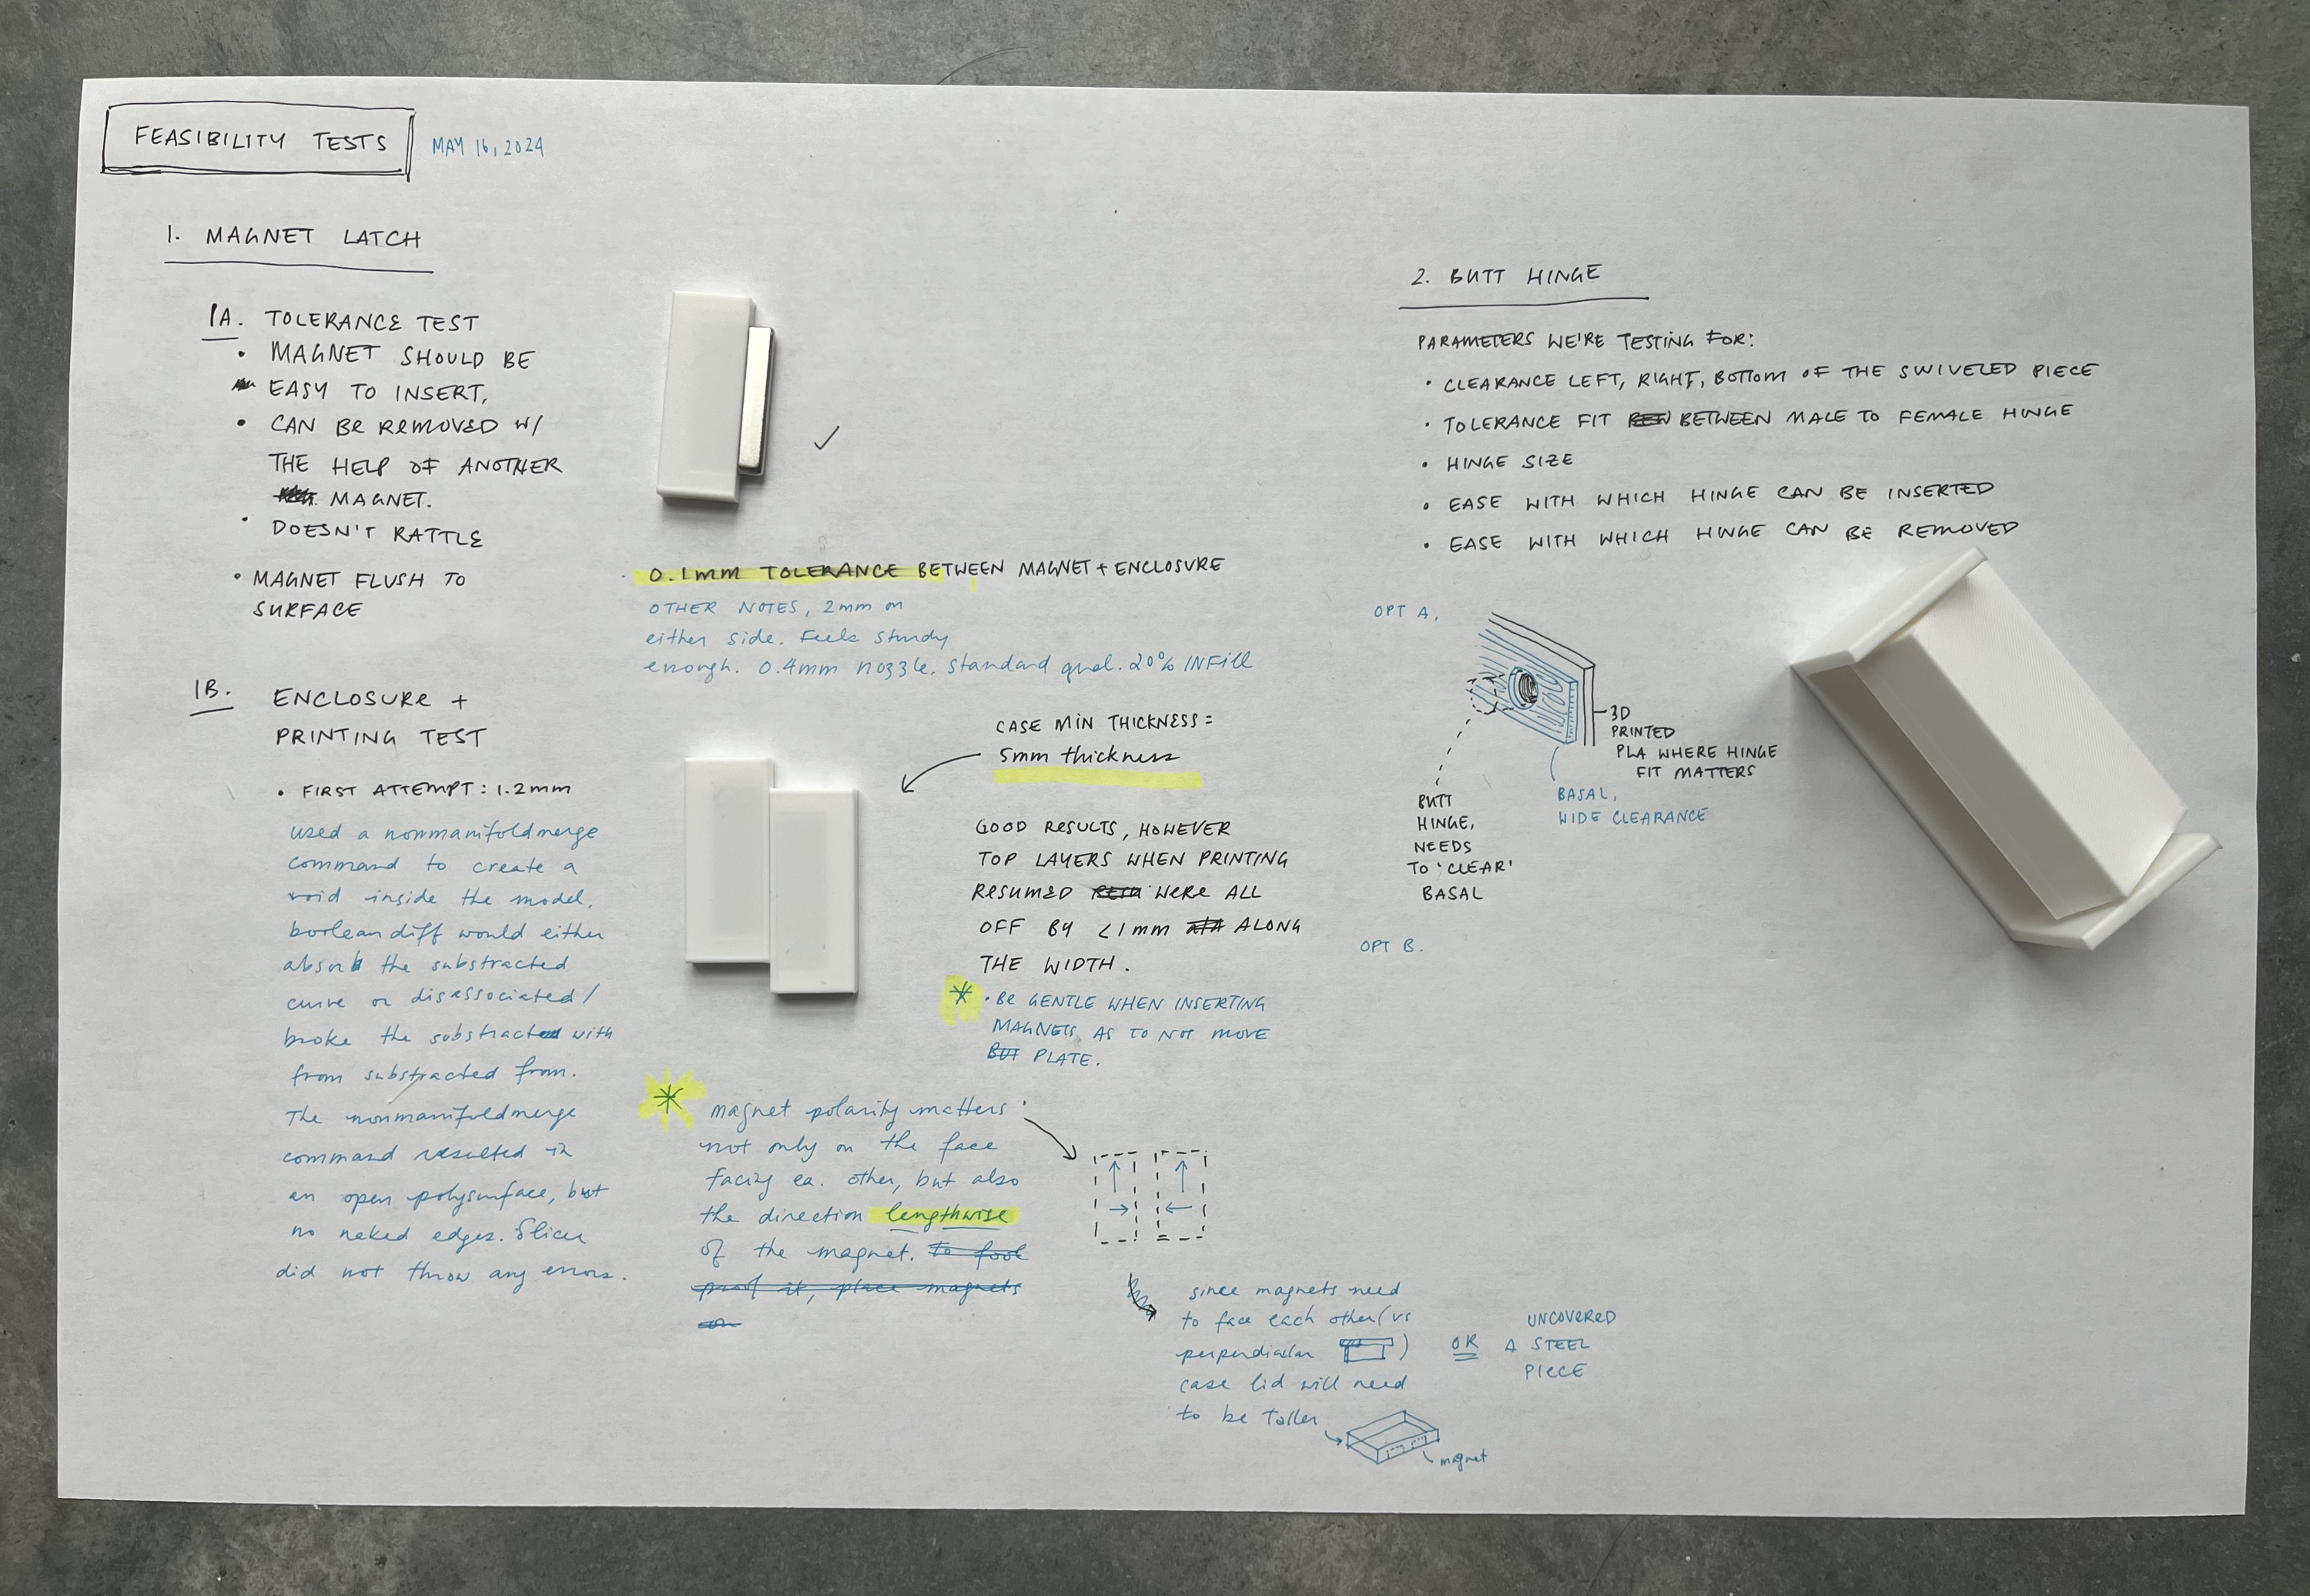 FEASIBILITY TESTS
MAY 16, 2024
1. MAGNET LATCH
1A. TOLERANCE TEST
• MAGNET SHOULD BE
EASY TO INSERT,
• CAN BE REMOVED W/
THE HELP OF ANOTHER
MAGNET.
• DOESN'T RATTLE
• MAGNET FLUSH TO
SURFACE
0.1mm TOLERANCE BETWEEN MAGNET + ENCLOSURE
OTHER NOTES, 2mm on
either side. Feels sturdy
enough. 0.4mm nozzle. Standard qual. 20% INFill
1B. ENCLOSURE +
PRINTING TEST
• FIRST ATTEMPT: 1.2mm
used a nonmanifoldmerge
command to create a
void inside the model.
booleandiff would either
absorb the substracted
curve or disassociated/
broke the substracted with
from substracted from.
The nonmanifoldmerge
command resulted in
an open polysurface, but
no naked edges. Slicer
did not throw any errors.
CASE MIN THICKNESS =
5mm thickness
GOOD RESULTS, HOWEVER
TOP LAYERS WHEN PRINTING
RESUMED WERE ALL
OFF BY <1mm ALONG
THE WIDTH.
* • BE GENTLE WHEN INSERTING
MAGNETS, AS TO NOT MOVE
BUT PLATE.
* magnet polarity matters
not only on the face
facing ea. other, but also
the direction lengthwise
of the magnet. to fool
proof it, place magnets
on
since magnets need
to face each other (vs
perpendicular )
case lid will need
to be taller
magnet
OR
A UNCOVERED
STEEL
PIECE
2. BUTT HINGE
PARAMETERS WE'RE TESTING FOR:
• CLEARANCE LEFT, RIGHT, BOTTOM OF THE SWIVELED PIECE
• TOLERANCE FIT BETWEEN MALE TO FEMALE HINGE
• HINGE SIZE
• EASE WITH WHICH HINGE CAN BE INSERTED
• EASE WITH WHICH HINGE CAN BE REMOVED
OPT A.
3D
PRINTED
PLA WHERE HINGE
FIT MATTERS
BASAL,
WIDE CLEARANCE
BUTT
HINGE,
NEEDS
TO 'CLEAR'
BASAL
OPT B.